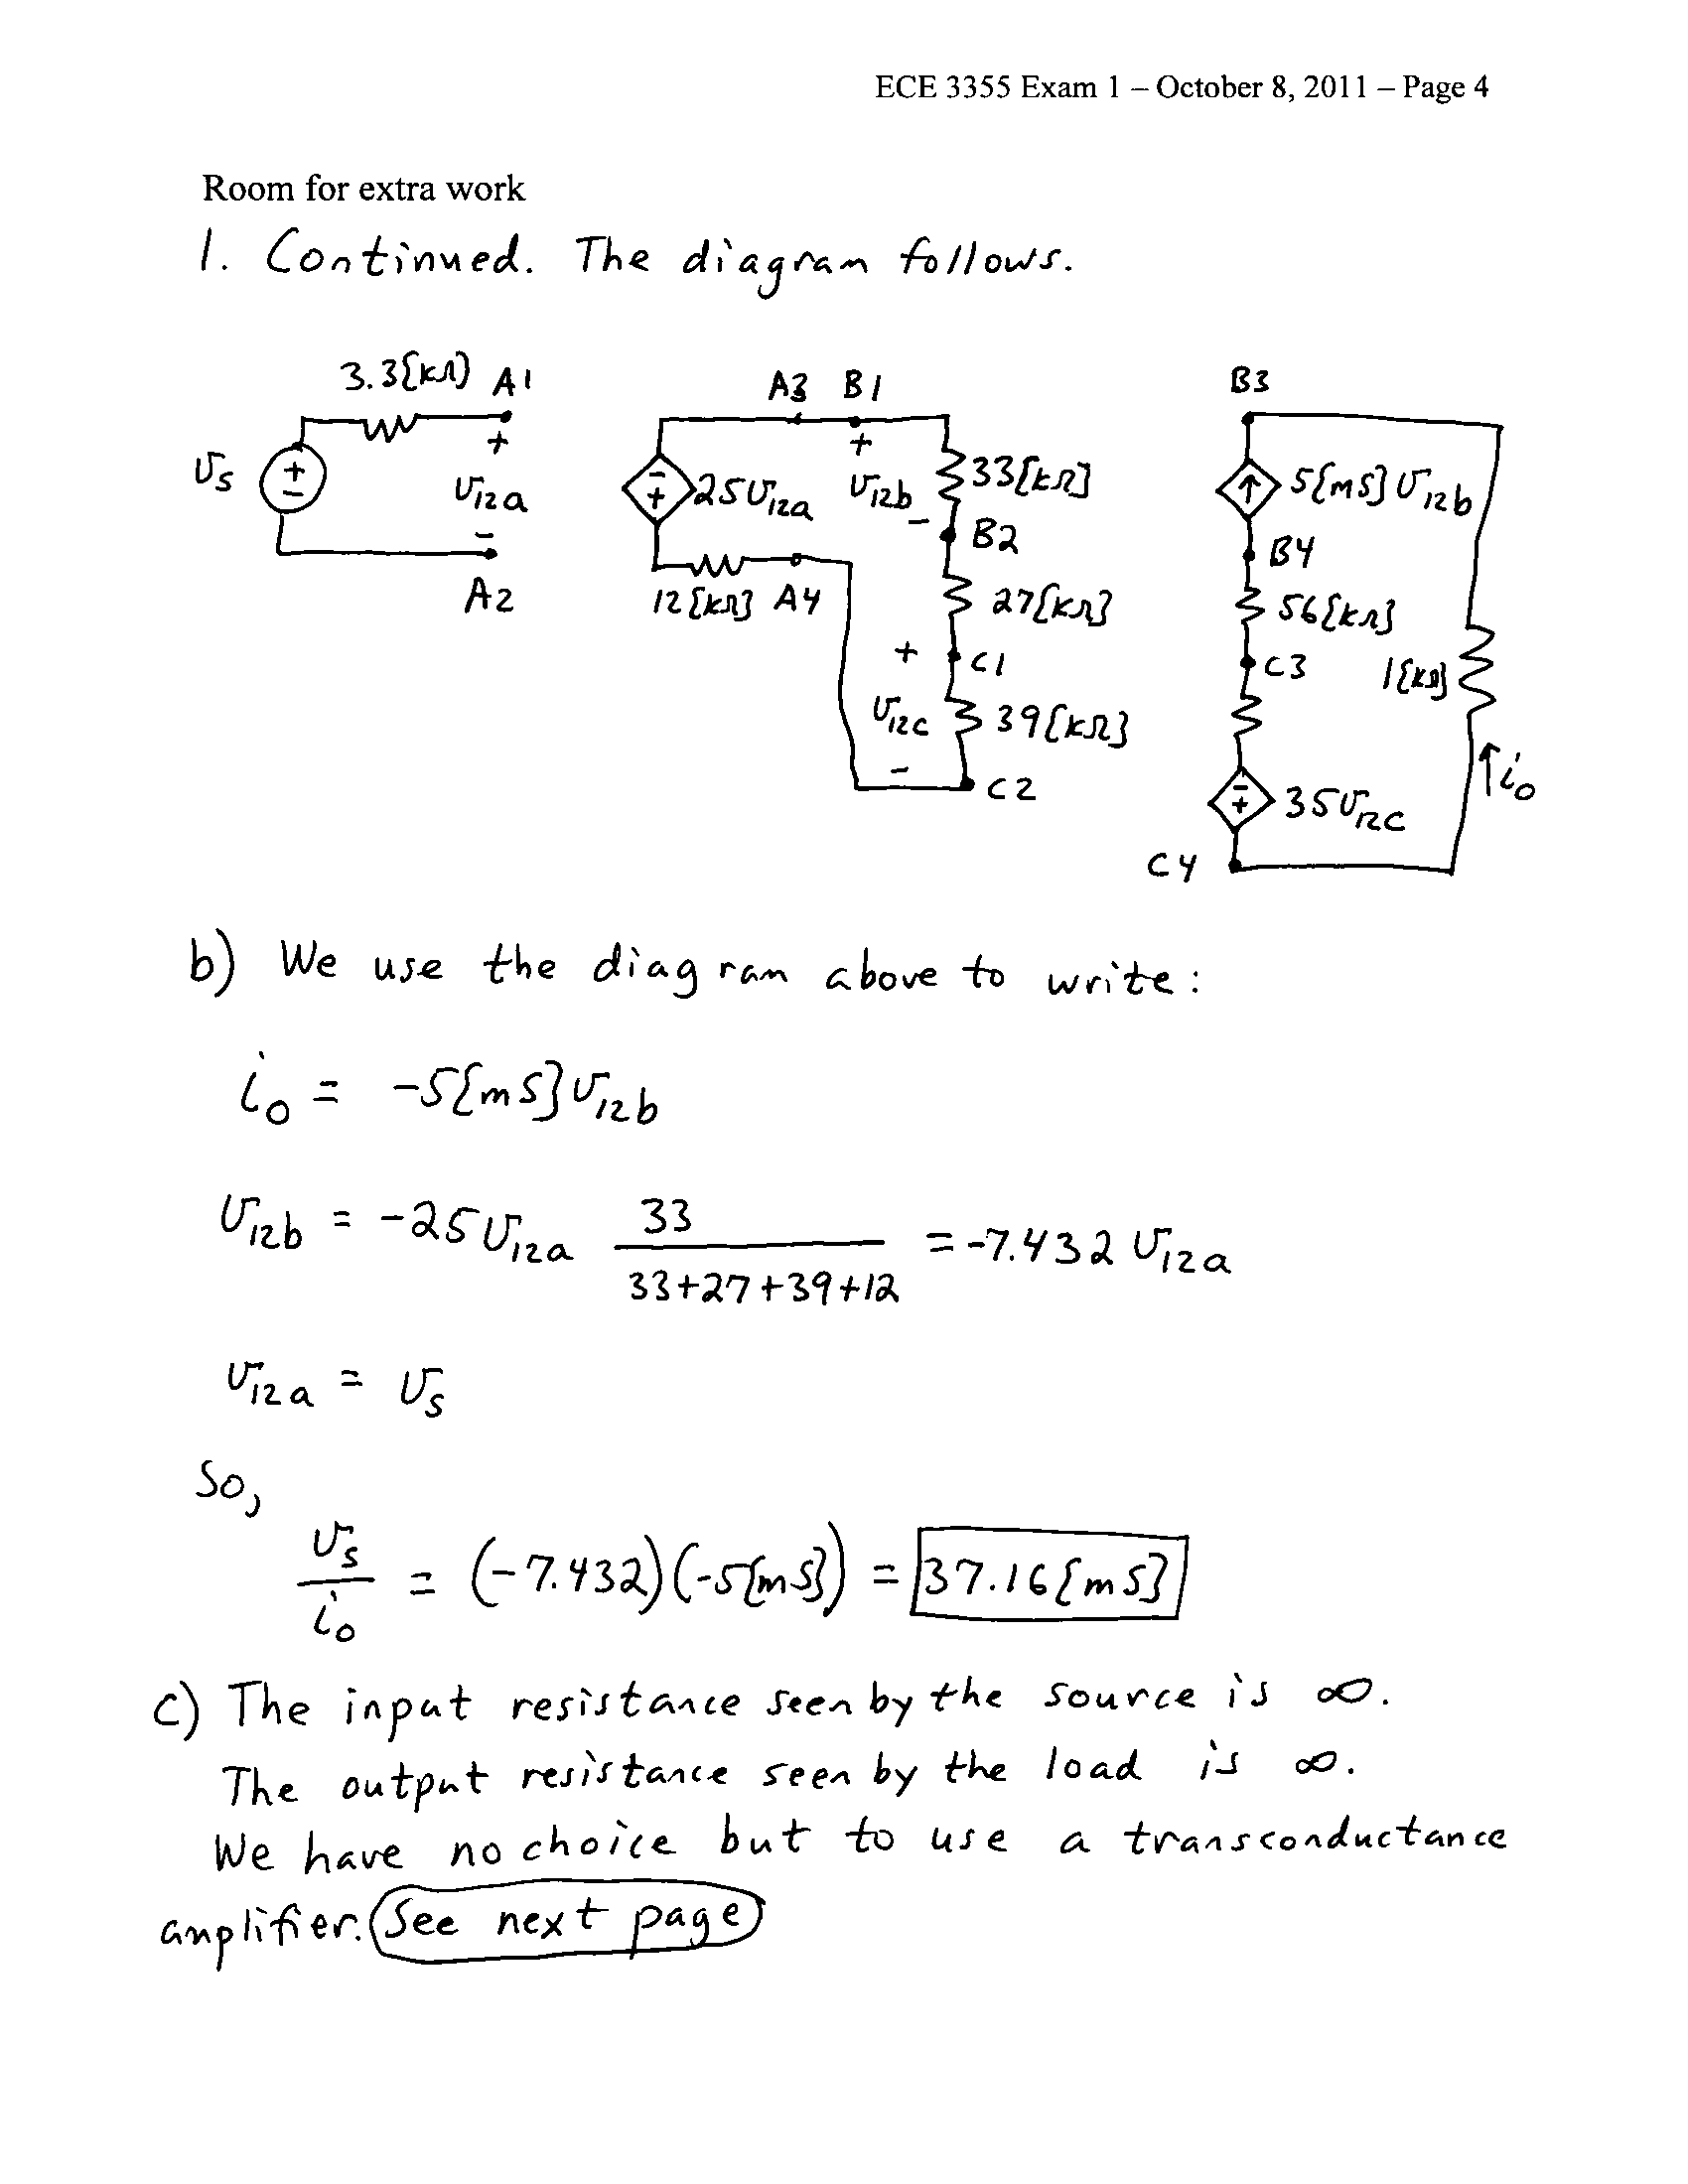 ECE 3355 Exam 1 – October 8, 2011 – Page 4
Room for extra work
1. Continued. The diagram follows.
3.3[kΩ] A1
A3 B1
B3
vs
+
-
+
v12a
-
A2
-
+
25v12a
+
v12b
-
33[kΩ]
B2
5[mS]v12b
B4
12[kΩ] A4
27[kΩ]
56[kΩ]
+
C1
C3
1[kΩ]
v12c
39[kΩ]
-
C2
io
-
+
35v12c
C4
b) We use the diagram above to write:
io = -5[mS]v12b
v12b = -25v12a 33 / 33+27+39+12 = -7.432 v12a
v12a = vs
So,
vs / io = (-7.432)(-5[mS]) = 37.16[mS]
c) The input resistance seen by the source is ∞.
The output resistance seen by the load is ∞.
We have no choice but to use a transconductance
amplifier. See next page